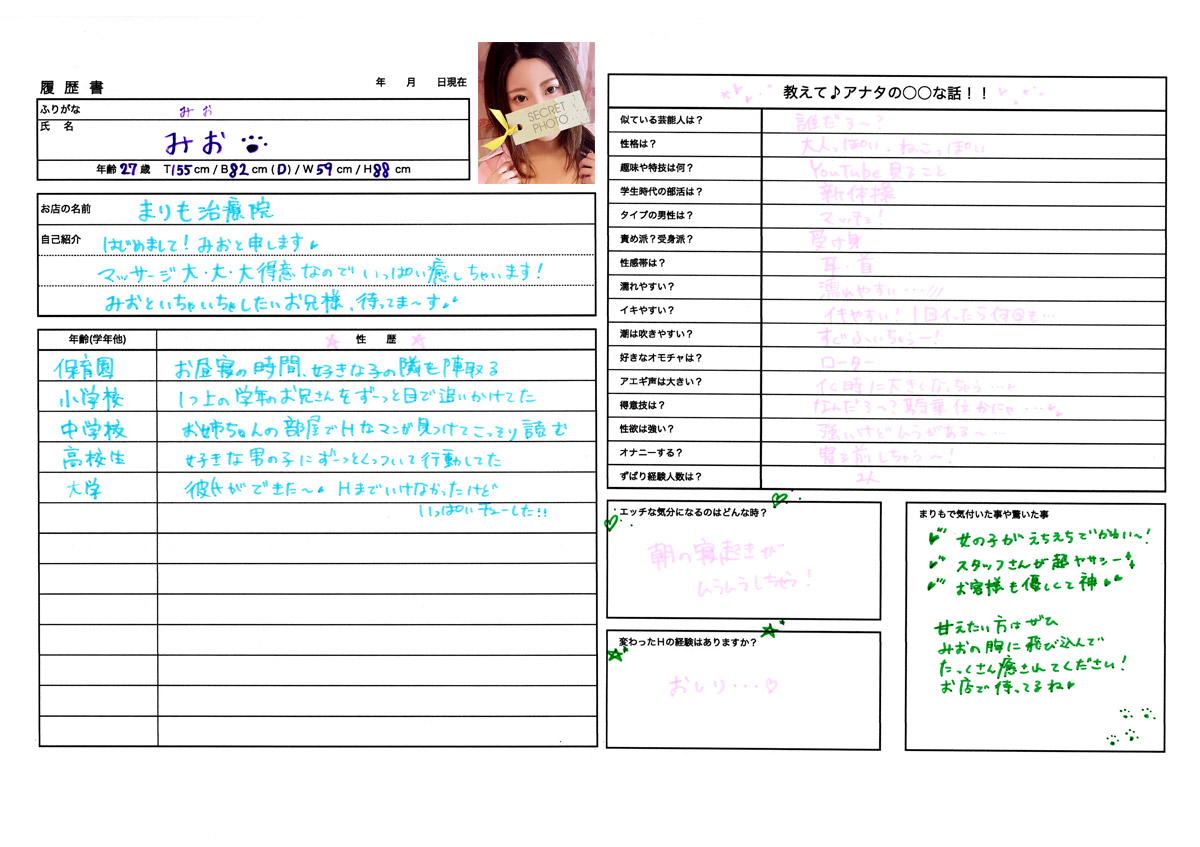 履歴書
年 月 日現在
ふりがな みお
氏 名 みお
年齢 27 歳 T155cm / B82cm (D) / W59cm / H88cm
SECRET
PHOTO
お店の名前 まりも治療院
自己紹介 はじめまして!みおと申します♪
マッサージ大・大・大得意なのでいっぱい癒しちゃいます!
みおといちゃいちゃしたいお兄様、待ってま〜す♪
年齢(学年他) 性 歴
保育園 お昼寝の時間、好きな子の隣を陣取る
小学校 1つ上の学年のお兄さんをずーっと目で追いかけてた
中学校 お姉ちゃんの部屋でHなマンガ見つけてこっそり読む
高校生 好きな男の子にずーっとくっついて行動してた
大学 彼氏ができた〜♪ Hまでいけなかったけど
いっぱいチューした!!
教えて♪アナタの○○な話!!
似ている芸能人は? 誰だろ〜?
性格は? 大人っぽい・ねこっぽい
趣味や特技は何? YouTube見ること
学生時代の部活は? 新体操
タイプの男性は? マッチョ!
責め派?受身派? 受け身
性感帯は? 耳・首
濡れやすい? 濡れやすい…///
イキやすい? イキやすい!1回イッたら何回も…
潮は吹きやすい? すぐふいちゃう〜!
好きなオモチャは? ローター
アエギ声は大きい? イく時に大きくなっちゃう…♪
得意技は? なんだろっ?騎乗位かにゃ…♪
性欲は強い? 強いけどムラがある〜…
オナニーする? 寝る前しちゃう〜!
ずばり経験人数は? 2人
エッチな気分になるのはどんな時?
朝の寝起きが
ムラムラしちゃう!
変わったHの経験はありますか?
おしり…♡
まりもで気付いた事や驚いた事
女の子がえちえちでかわい〜!
スタッフさんが超ヤサシー
お客様も優しくて神♪
甘えたい方はぜひ
みおの胸に飛び込んで
たっくさん癒されてください!
お店で待ってるね♪